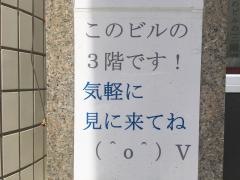 このビルの
３階です！
気軽に
見に来てね
（＾ｏ＾）Ｖ